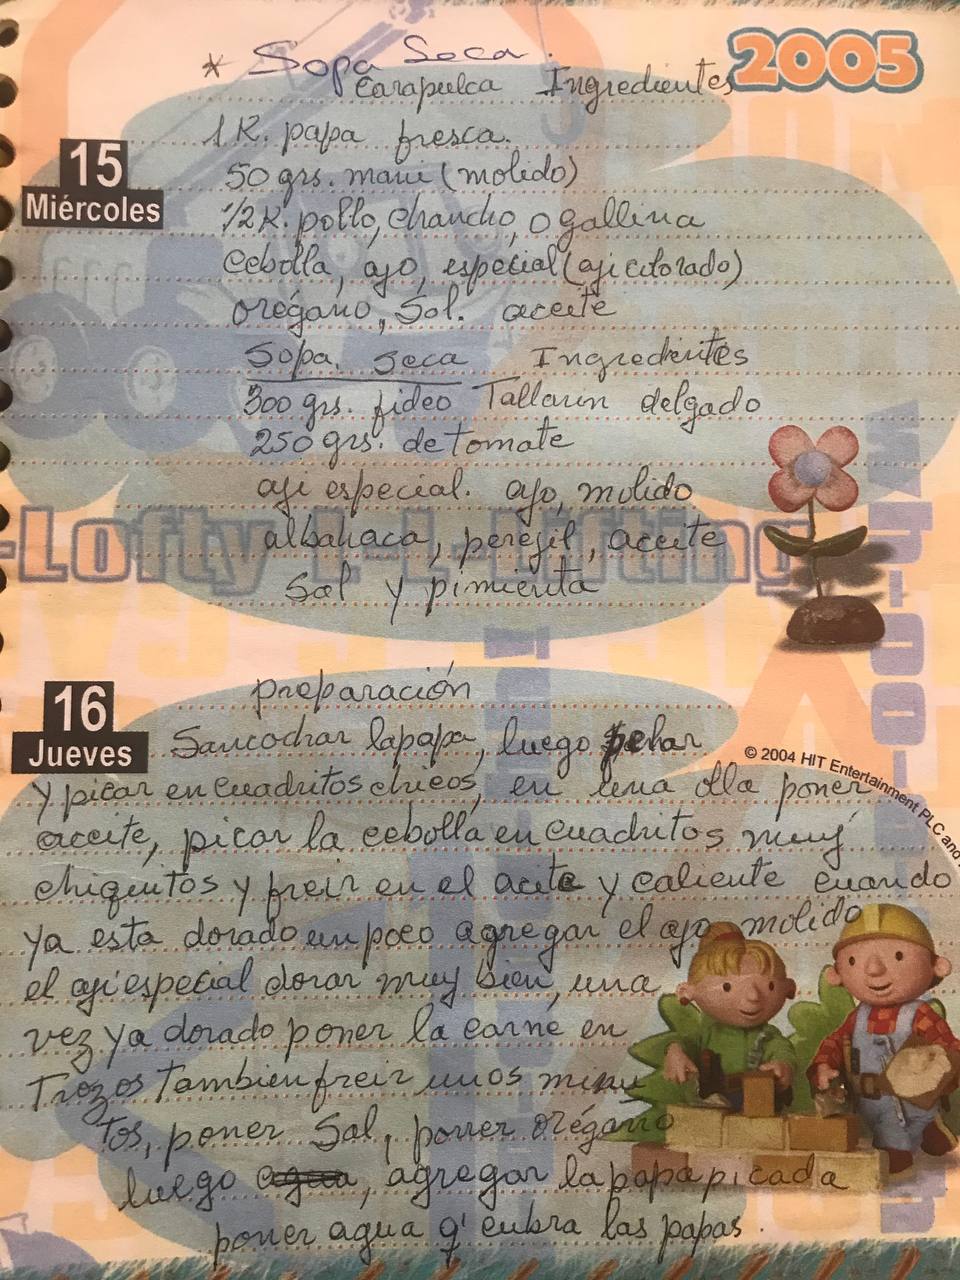 * Sopa Seca.
2005
Carapulca Ingredientes
1 K. papa fresca.
15
Miércoles
50 grs. mani (molido)
1/2 K. pollo, chancho, o gallina
Cebolla, ajo, especial (aji colorado)
orégano, Sal. aceite
Sopa. Seca Ingredientes
300 grs. fideo Tallarin delgado
250 grs. de tomate
aji especial. ajo, molido
-Lofty L-L-Lifting
albahaca, perejil, aceite
Sal y pimienta
preparación
16
Jueves
Sancochar la papa, luego pelar
© 2004 HIT Entertainment PLC and
y picar en cuadritos chicos, en una olla poner
aceite, picar la cebolla en cuadritos muy
chiquitos y freir en el aceite y caliente cuando
ya esta dorado un poco agregar el ajo molido
el aji especial dorar muy bien, una
vez ya dorado poner la carne en
Trozos Tambien freir unos minu
Tos, poner Sal, poner orégano
luego agua, agregar la papa picada
poner agua q' cubra las papas.